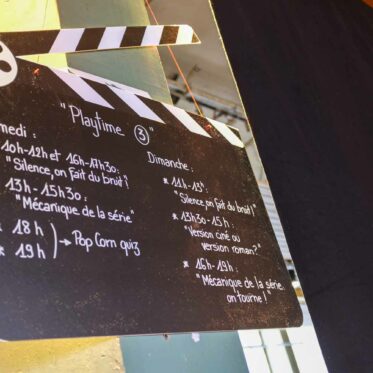 "Playtime ③"
medi :
10h-12h et 16h-17h30 :
"Silence, on fait du bruit"!
13h - 15h30 :
"Mécanique de la série"
* 18h
* 19h
→ Pop Corn quiz
Dimanche :
* 11h-13h :
"Silence, on fait du bruit"!
* 13h30-15h :
"Version ciné ou
version roman ?"
* 16h-19h :
"Mécanique de la série,
on tourne !"